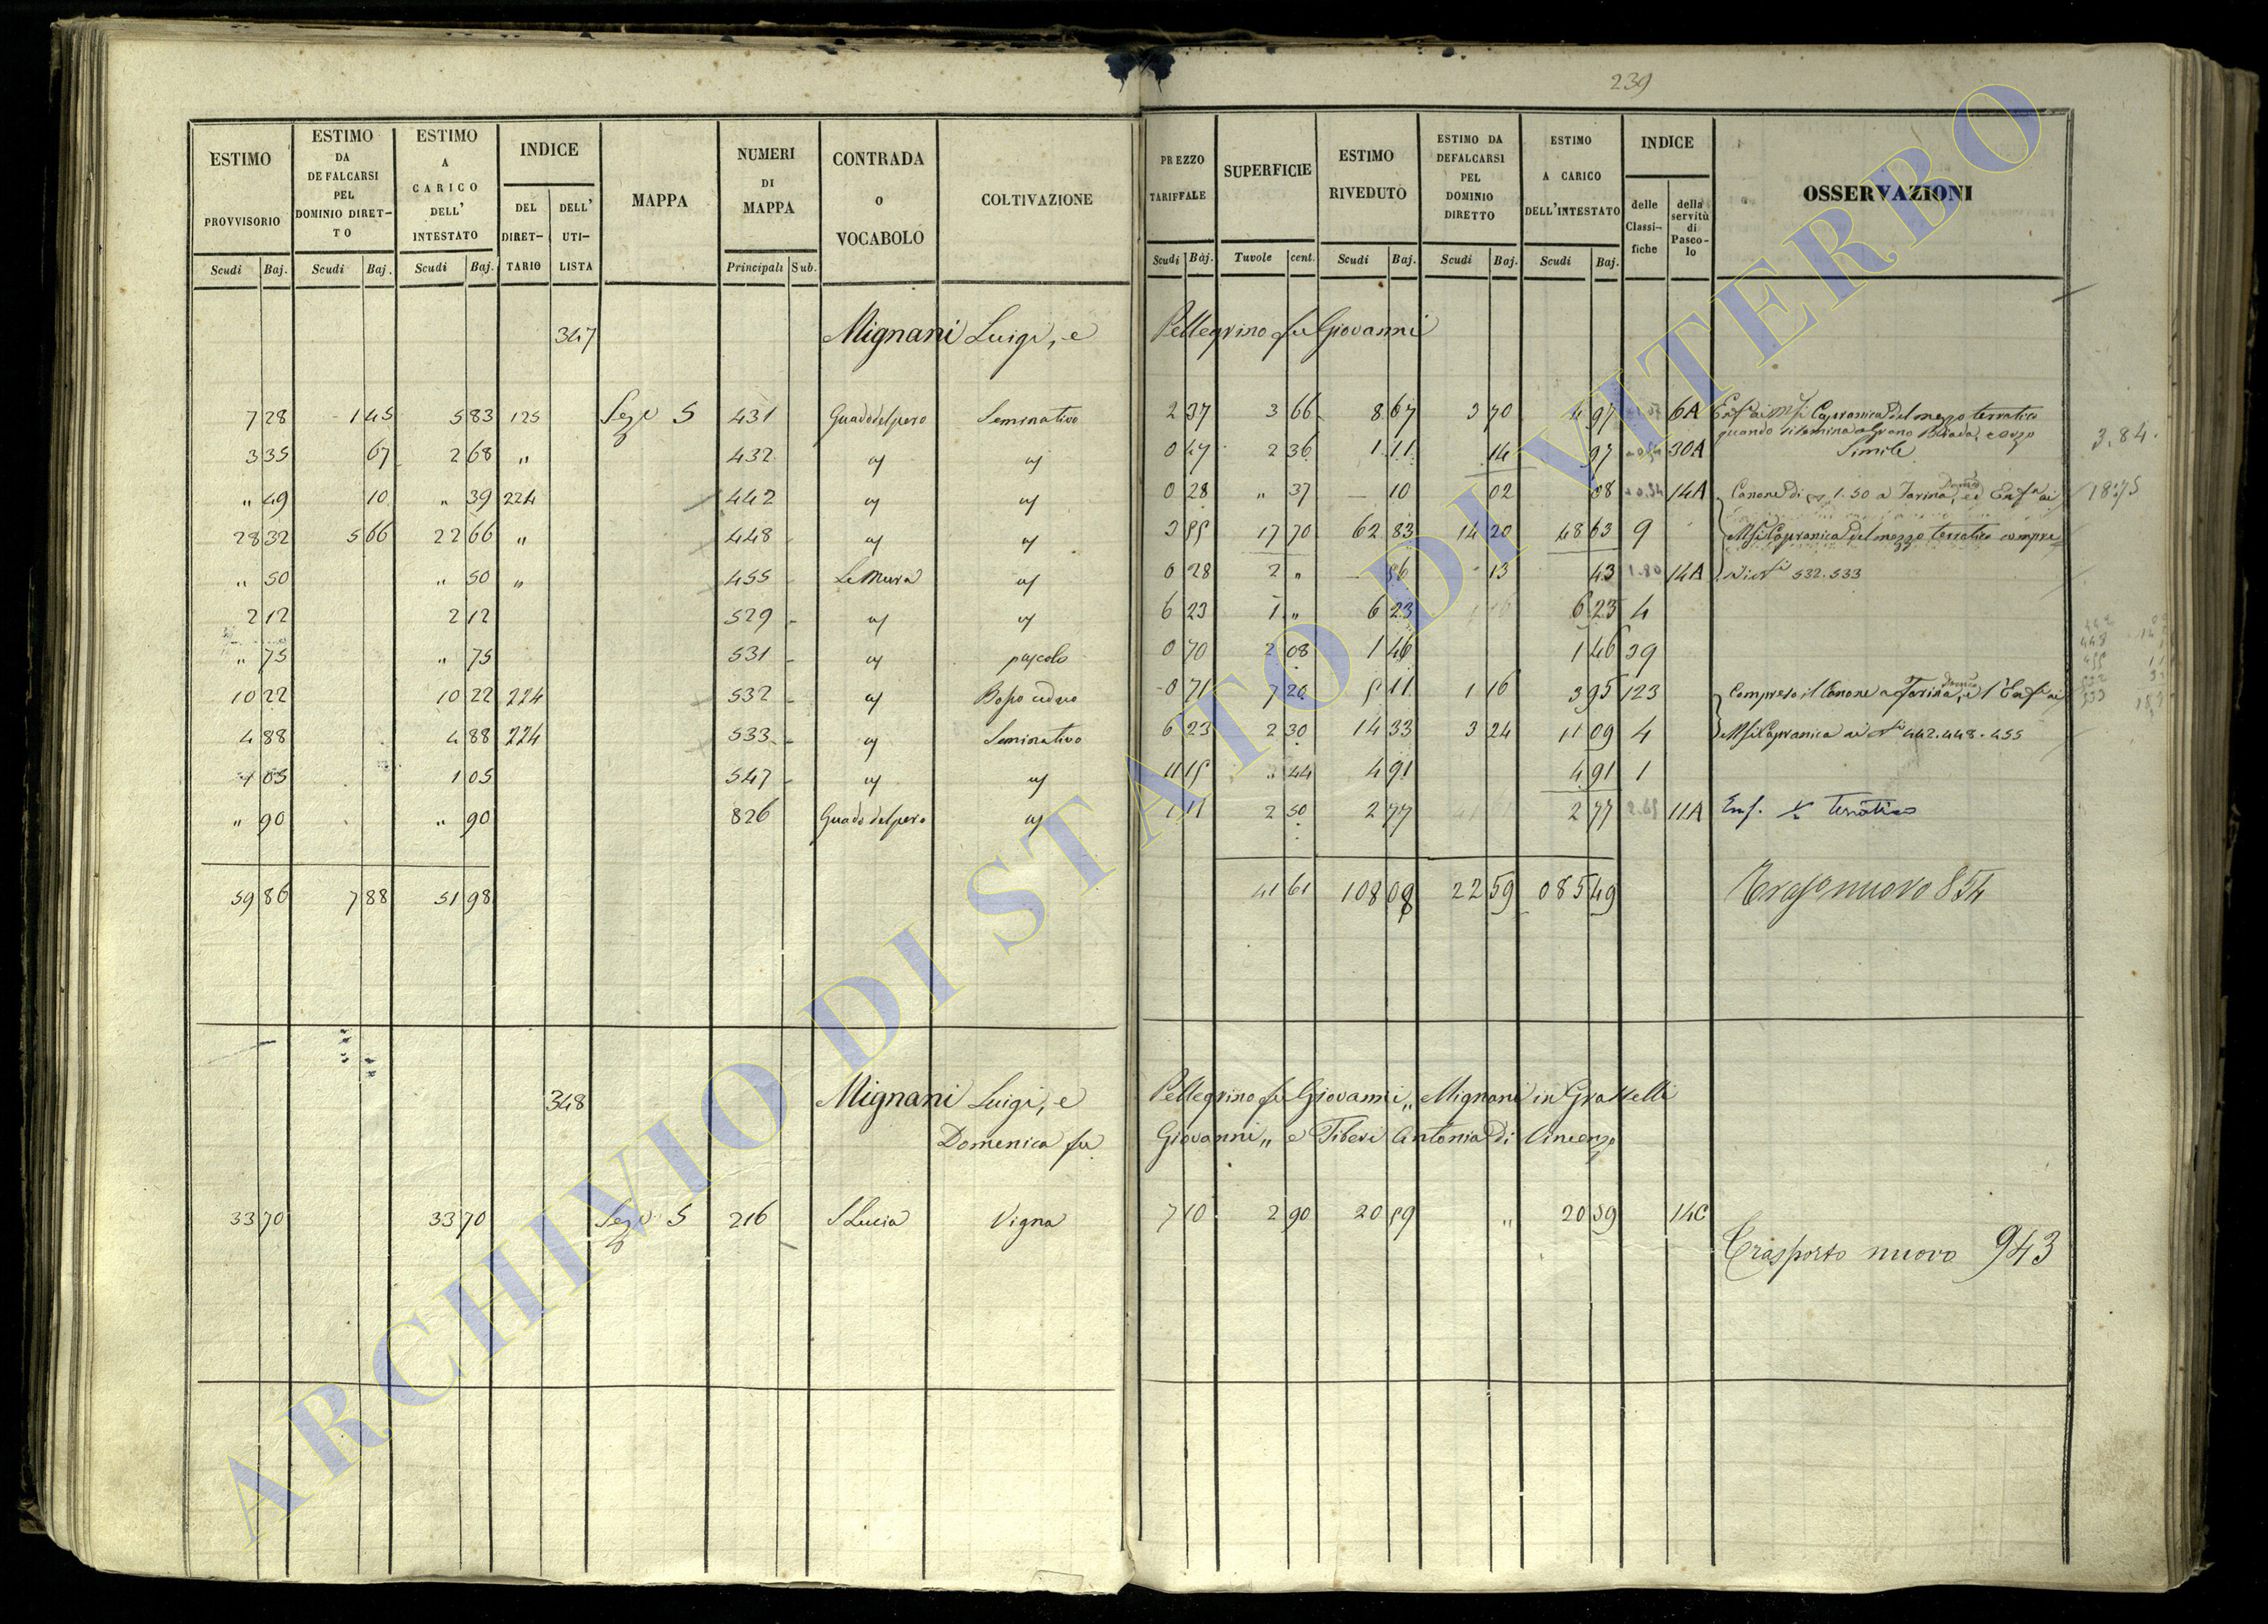 239
ESTIMO PROVVISORIO Scudi Baj. | ESTIMO DA DEFALCARSI PEL DOMINIO DIRET-TO Scudi Baj. | ESTIMO A CARICO DELL' INTESTATO Scudi Baj. | INDICE DEL DIRET-TARIO DELL' UTI-LISTA | MAPPA | NUMERI DI MAPPA Principali Sub. | CONTRADA O VOCABOLO | COLTIVAZIONE | PREZZO TARIFFALE Scudi Baj. | SUPERFICIE Tavole cent. | ESTIMO RIVEDUTO Scudi Baj. | ESTIMO DA DEFALCARSI PEL DOMINIO DIRETTO Scudi Baj. | ESTIMO A CARICO DELL'INTESTATO Scudi Baj. | INDICE delle Classi-fiche della servitù di Pasco-lo | OSSERVAZIONI
347 Mignani Luigi, e Pellegrino fu Giovanni
7 28 1 45 5 83 125 Sez. 5 431 Guado del pero Seminativo 2 37 3 66 8 67 3 70 4 97 6A Capranica del mezzo terratico
quando si semina a Grano Biada, e orzo 3.84.
3 35 67 2 68 " 432 0 47 2 36 1 11 14 97 30A Simile
" 49 10 " 39 224 442 0 28 " 37 10 02 08 14A Canone di 1.50 a Farina Domco ed 18:75
28 32 5 66 22 66 " 448 3 55 17 70 62 83 14 20 48 63 9 Capranica del mezzo terratico compre
" 50 " 50 " 455 Le Mura 0 28 2 " 56 13 43 1.80 14A 532.533
2 12 2 12 529 6 23 1 " 6 23 6 23 4
" 75 " 75 531 pascolo 0 70 2 08 1 46 1 46 39
10 22 10 22 224 532 Bosco ceduo 0 71 7 20 5 11 1 16 3 95 123 Compreso il Canone a Farina Domco, e l'
4 88 4 88 224 533 Seminativo 6 23 2 30 14 33 3 24 11 09 4 Capranica ai 442.448.455
1 05 1 05 547 11 15 " 44 4 91 4 91 1
" 90 " 90 826 Guado del pero 1 11 2 50 2 77 2 77 11A Enf. Terratico
59 86 7 88 51 98 41 61 108 08 22 59 085 49 Traspo nuovo 854
348 Mignani Luigi, e Pellegrino fu Giovanni „ Mignani in Grattelli
Domenica fu Giovanni „ e Tiberi Antonia di Vincenzo
33 70 33 70 Sez. 5 216 S Lucia Vigna 7 10 2 90 20 59 " 20 59 14C
Trasporto nuovo 943
ARCHIVIO DI STATO DI VITERBO